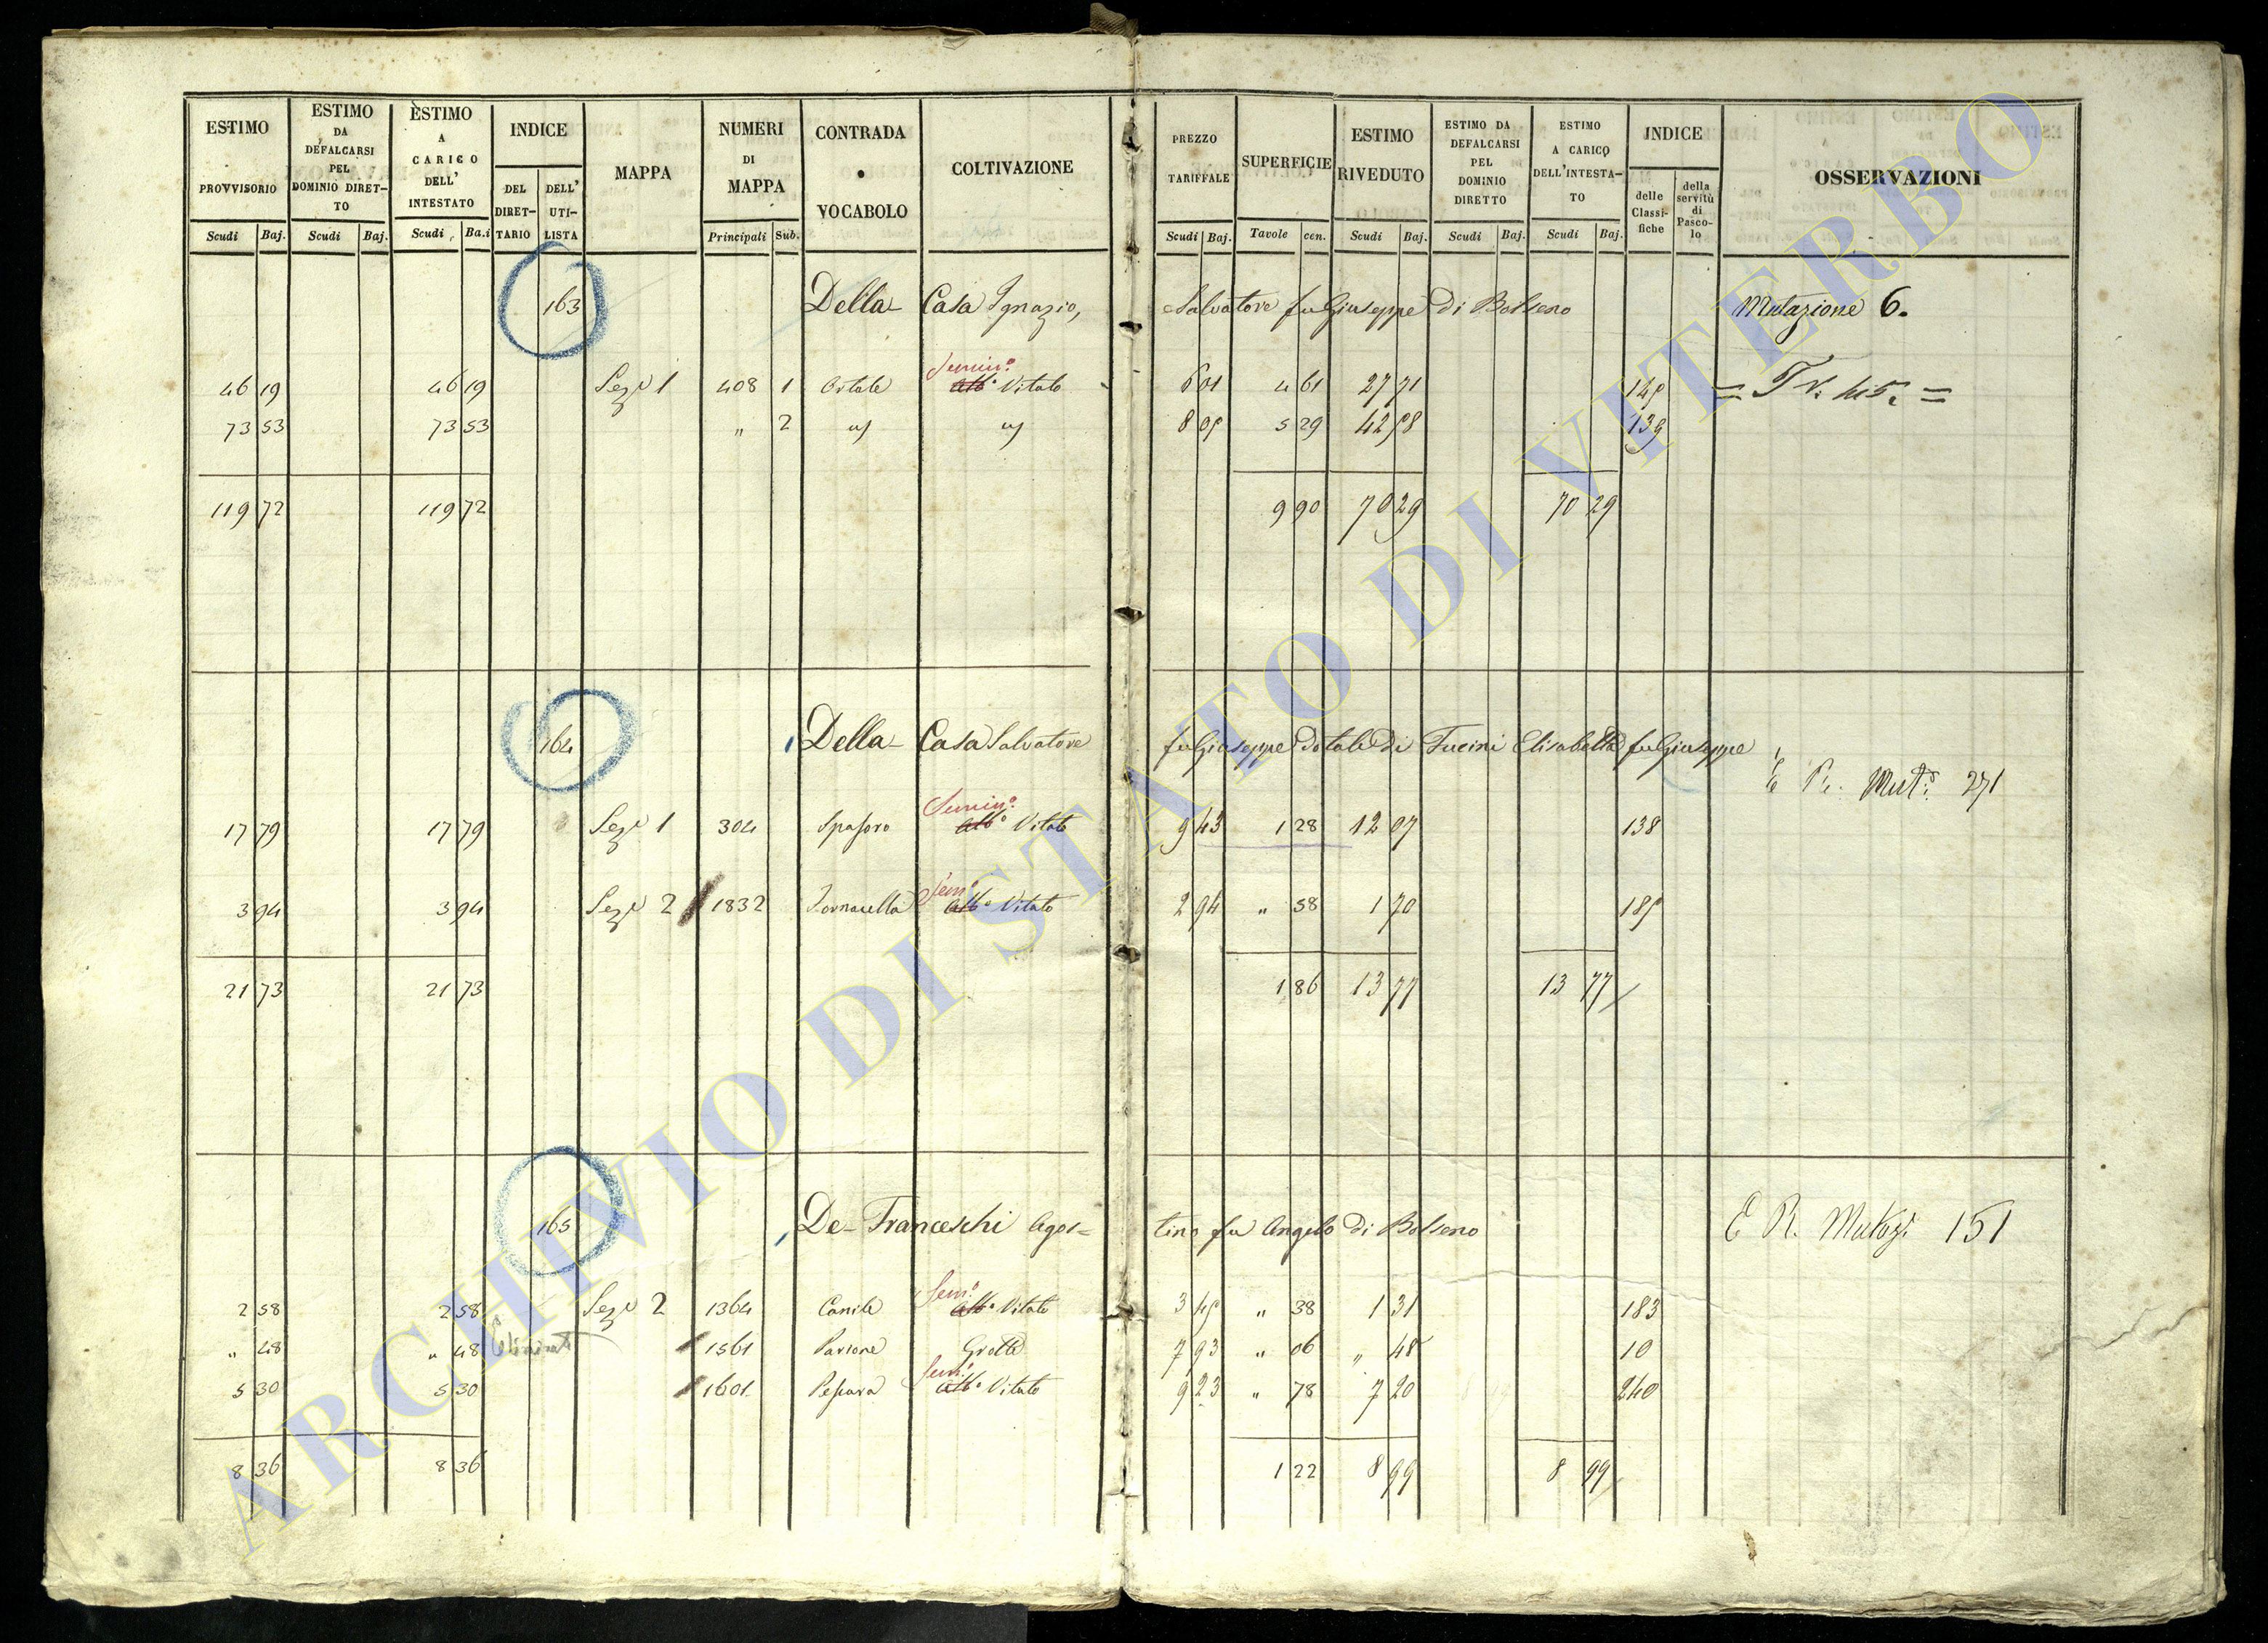 ESTIMO PROVVISORIO
ESTIMO DA DEFALCARSI PEL DOMINIO DIRETTO
ESTIMO A CARICO DELL' INTESTATO
INDICE
DEL DIRETTARIO
DELL' UTILISTA
MAPPA
NUMERI DI MAPPA
CONTRADA o VOCABOLO
COLTIVAZIONE
PREZZO TARIFFALE
SUPERFICIE
ESTIMO RIVEDUTO
ESTIMO DA DEFALCARSI PEL DOMINIO DIRETTO
ESTIMO A CARICO DELL'INTESTATO
INDICE
delle Classifiche
della servitù di Pascolo
OSSERVAZIONI
Scudi Baj. Scudi Baj. Scudi Ba.i Principali Sub. Scudi Baj. Tavole cen. Scudi Baj. Scudi Baj. Scudi Baj.
163 Della Casa Ignazio, Salvatore fu Giuseppe di Bolseno Mutazione 6.
46 19 46 19 Sez.e 1 408 1 Ortale Semin.o Alb.o Vitato 6 01 4 61 27 71 145
73 53 73 53 " 2 " " 8 05 5 29 42 58 139
119 72 119 72 9 90 70 29 70 29
164 Della Casa Salvatore fu Giuseppe dotale di Fucini Elisabetta fu Giuseppe
E R. Mut.e 271
17 79 17 79 Sez.e 1 304 Spasoro Semin.o Alb.o Vitato 9 43 1 28 12 07 138
3 94 3 94 Sez.e 2 1832 Fornacella Sem.o Alb.o Vitato 2 94 " 58 1 70 185
21 73 21 73 1 86 13 77 13 77
165 De Franceschi Agostino fu Angelo di Bolseno E R. Mutaz. 151
2 58 2 58 Sez.e 2 1364 Canile Sem.o Alb.o Vitato 3 45 " 38 1 31 183
" 48 " 48 1561 Parione Grotta 7 93 " 06 " 48 10
5 30 5 30 1601 Pessara Sem.o Alb.o Vitato 9 23 " 78 7 20 240
8 36 8 36 1 22 8 99 8 99
ARCHIVIO DI STATO DI VITERBO